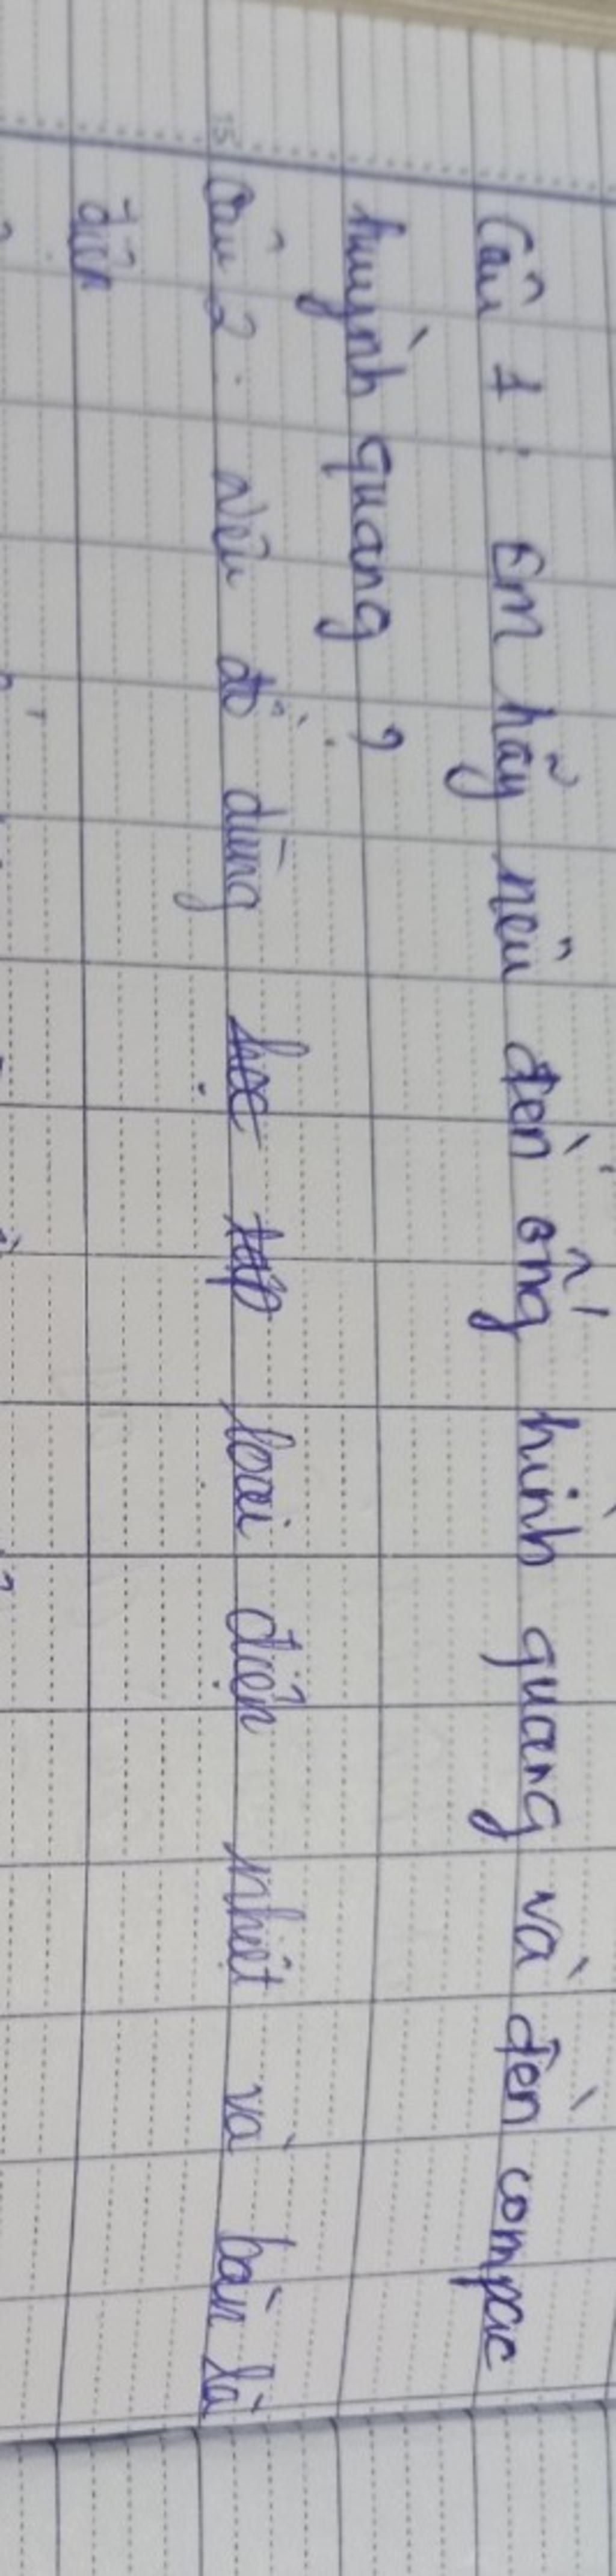 Câu 1: Em hãy nêu đèn ống hình quang và đèn compac
huỳnh quang ?
Câu 2: Nêu đồ dùng học tập loại điện nhiệt và bàn là
điện